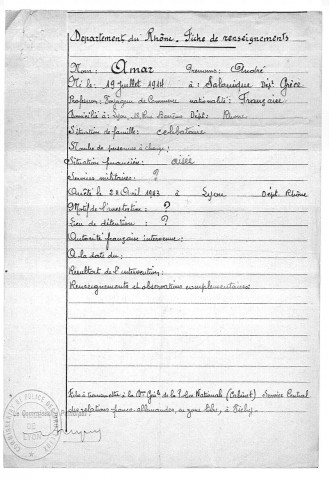 Département du Rhône. Fiche de renseignements
Nom: Amar Prénoms: André
Né le: 19 Juillet 1914 à: Salonique Dépt: Grèce
Profession: Employé de Commerce nationalité: Française
Domicilié à: Lyon, Rue Dépt: Rhône
Situation de famille: celibataire
Nombre de personnes à charge:
Situation financière: aisée
Services militaires: ?
Arrêté le 28 Avril 1943 à Lyon Dépt. Rhône
Motif de l'arrestation: ?
Lieu de détention: ?
Autorité française intervenue:
A la date du:
Résultat de l'intervention:
Renseignements et observations complémentaires
Fiche à transmettre à la Don Gale de la Police Nationale (Cabinet) Service Central
des relations franco-allemandes, en zone libre, à Vichy.
Le Commissaire Principal:
COMMISSARIAT DE POLICE
DE
LYON